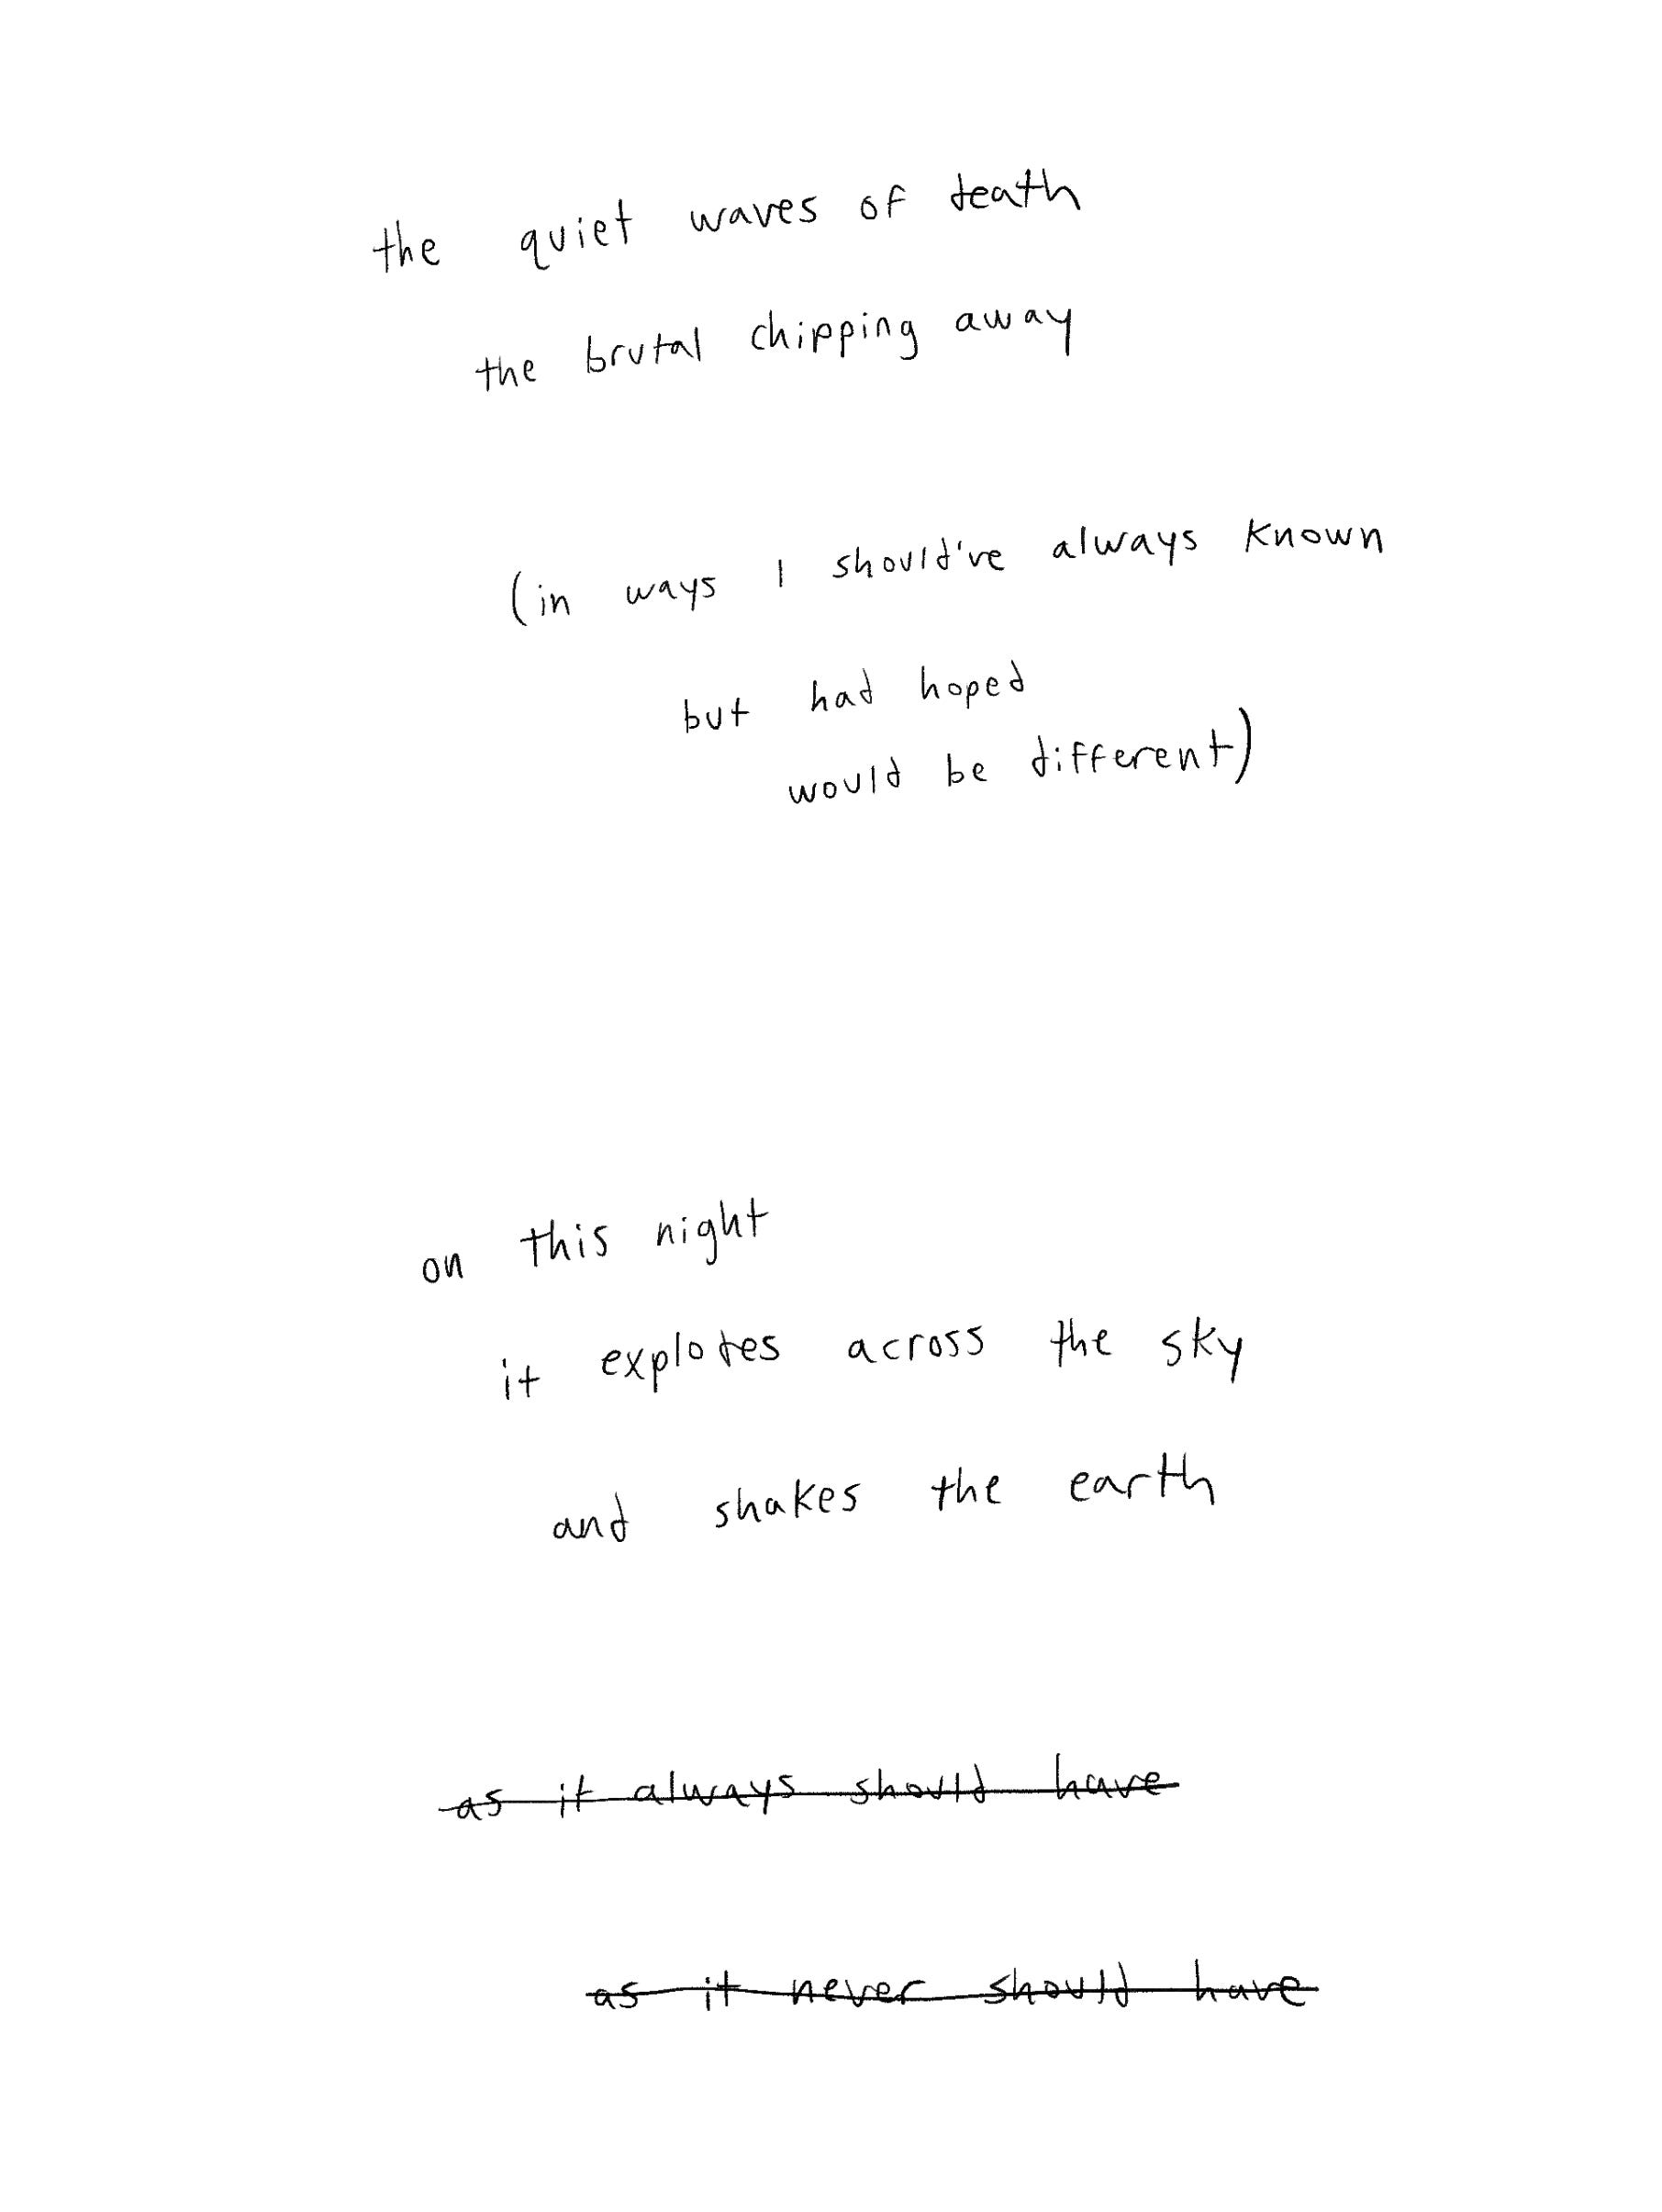 the quiet waves of death
the brutal chipping away
(in ways I should've always known
but had hoped
would be different)
on this night
it explodes across the sky
and shakes the earth
as it always should have
as it never should have